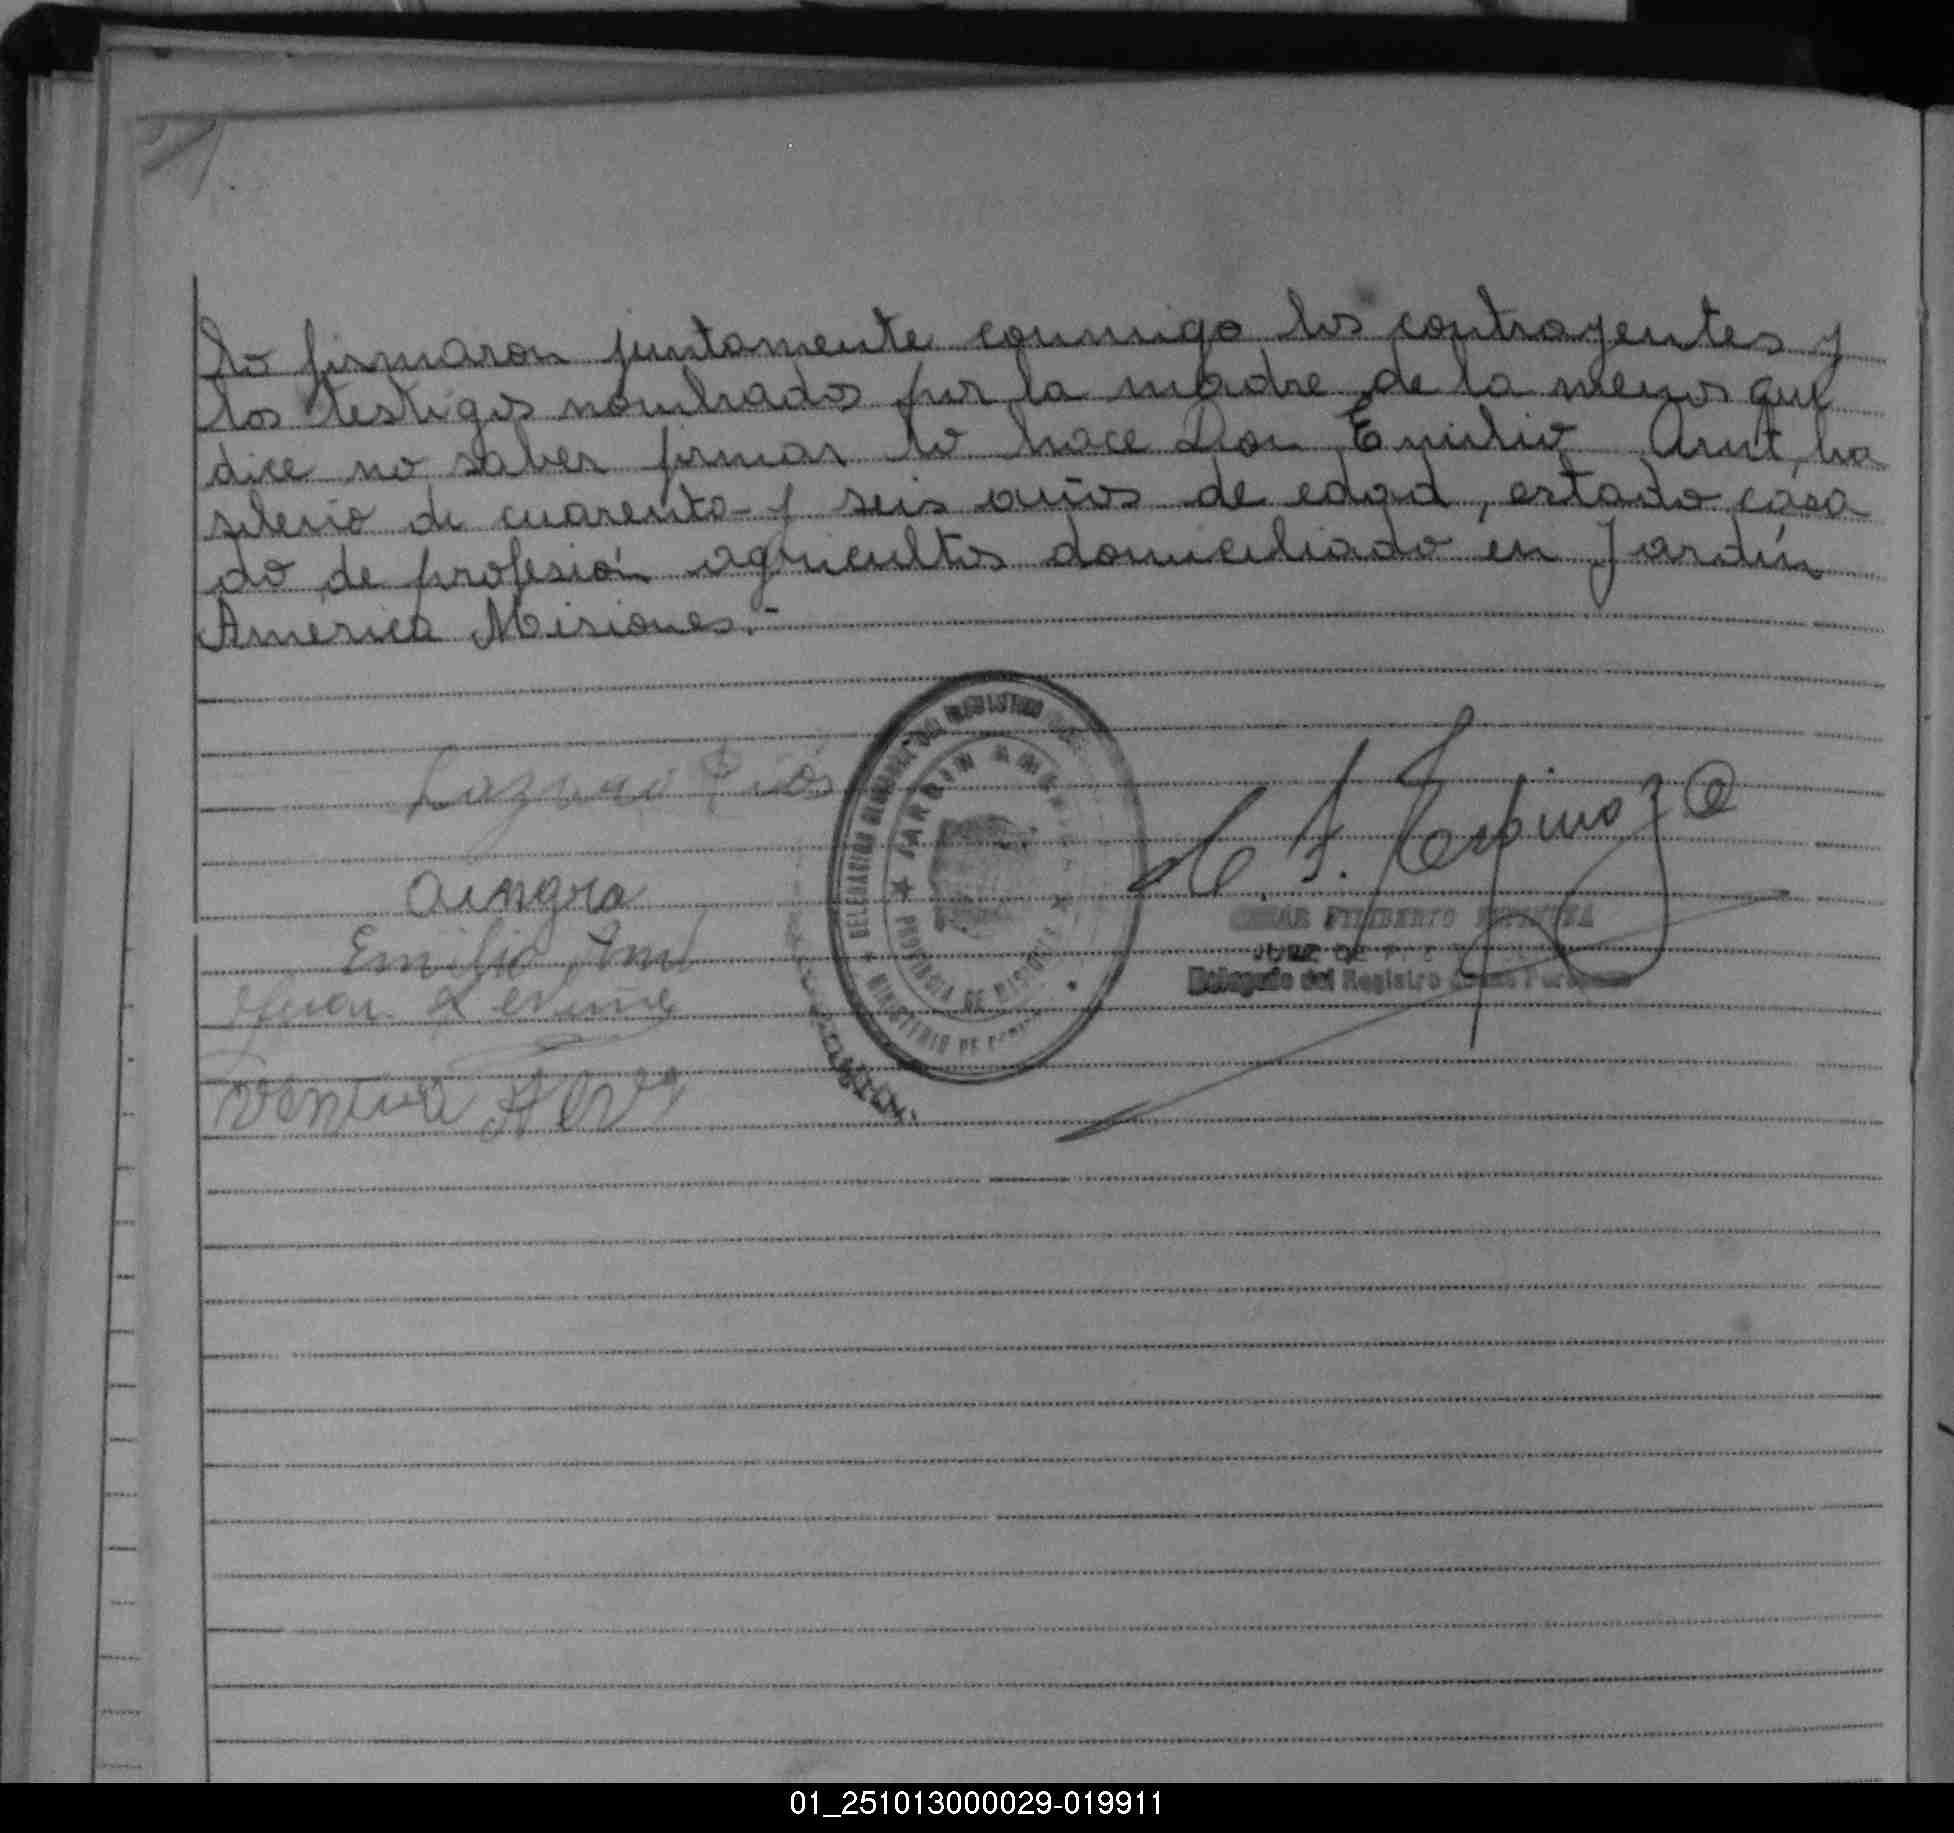 lo firmaron juntamente conmigo los contrayentes y
los testigos nombrados por la madre de la menor que
dice no saber firmar lo hace Don Emilio Arnt, bra
silerio de cuarenta y seis años de edad, estado casa
do de profesión agricultor domiciliado en Jardín
America Misiones.-
Ríos
Emilio Arnt
Juan
Ventura
DELEGACIÓN DEL REGISTRO
JARDIN AMERICA
PROVINCIA DE MISIONES
MINISTERIO DE
C. F. Espinoza
CESAR FILIBERTO ESPINOZA
JUEZ DE
Delegado del Registro
01_251013000029-019911